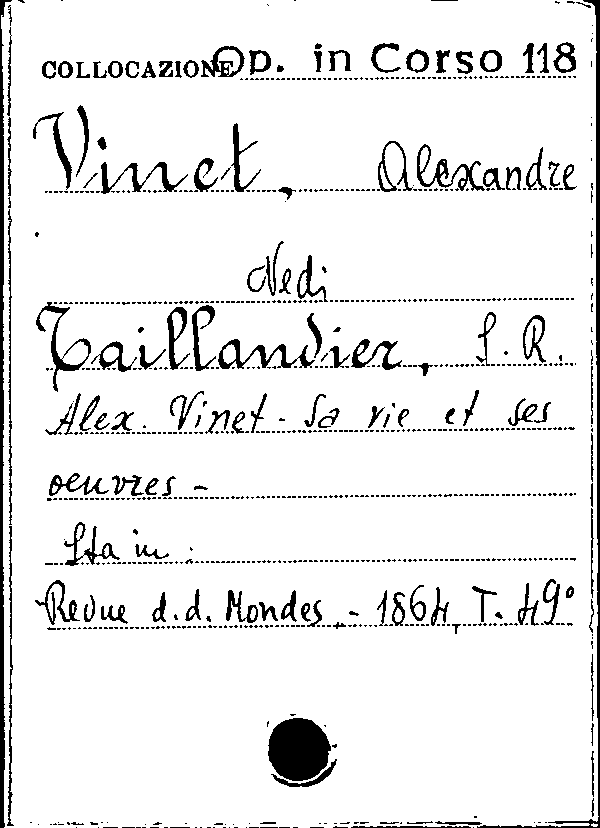 COLLOCAZIONE Op. in Corso 118
Vinet, Alexandre
Vedi
Taillandier, S. R.
Alex. Vinet - Sa vie et ses
oeuvres -
Sta in:
Revue d. d. Mondes, - 1864, T. 49°